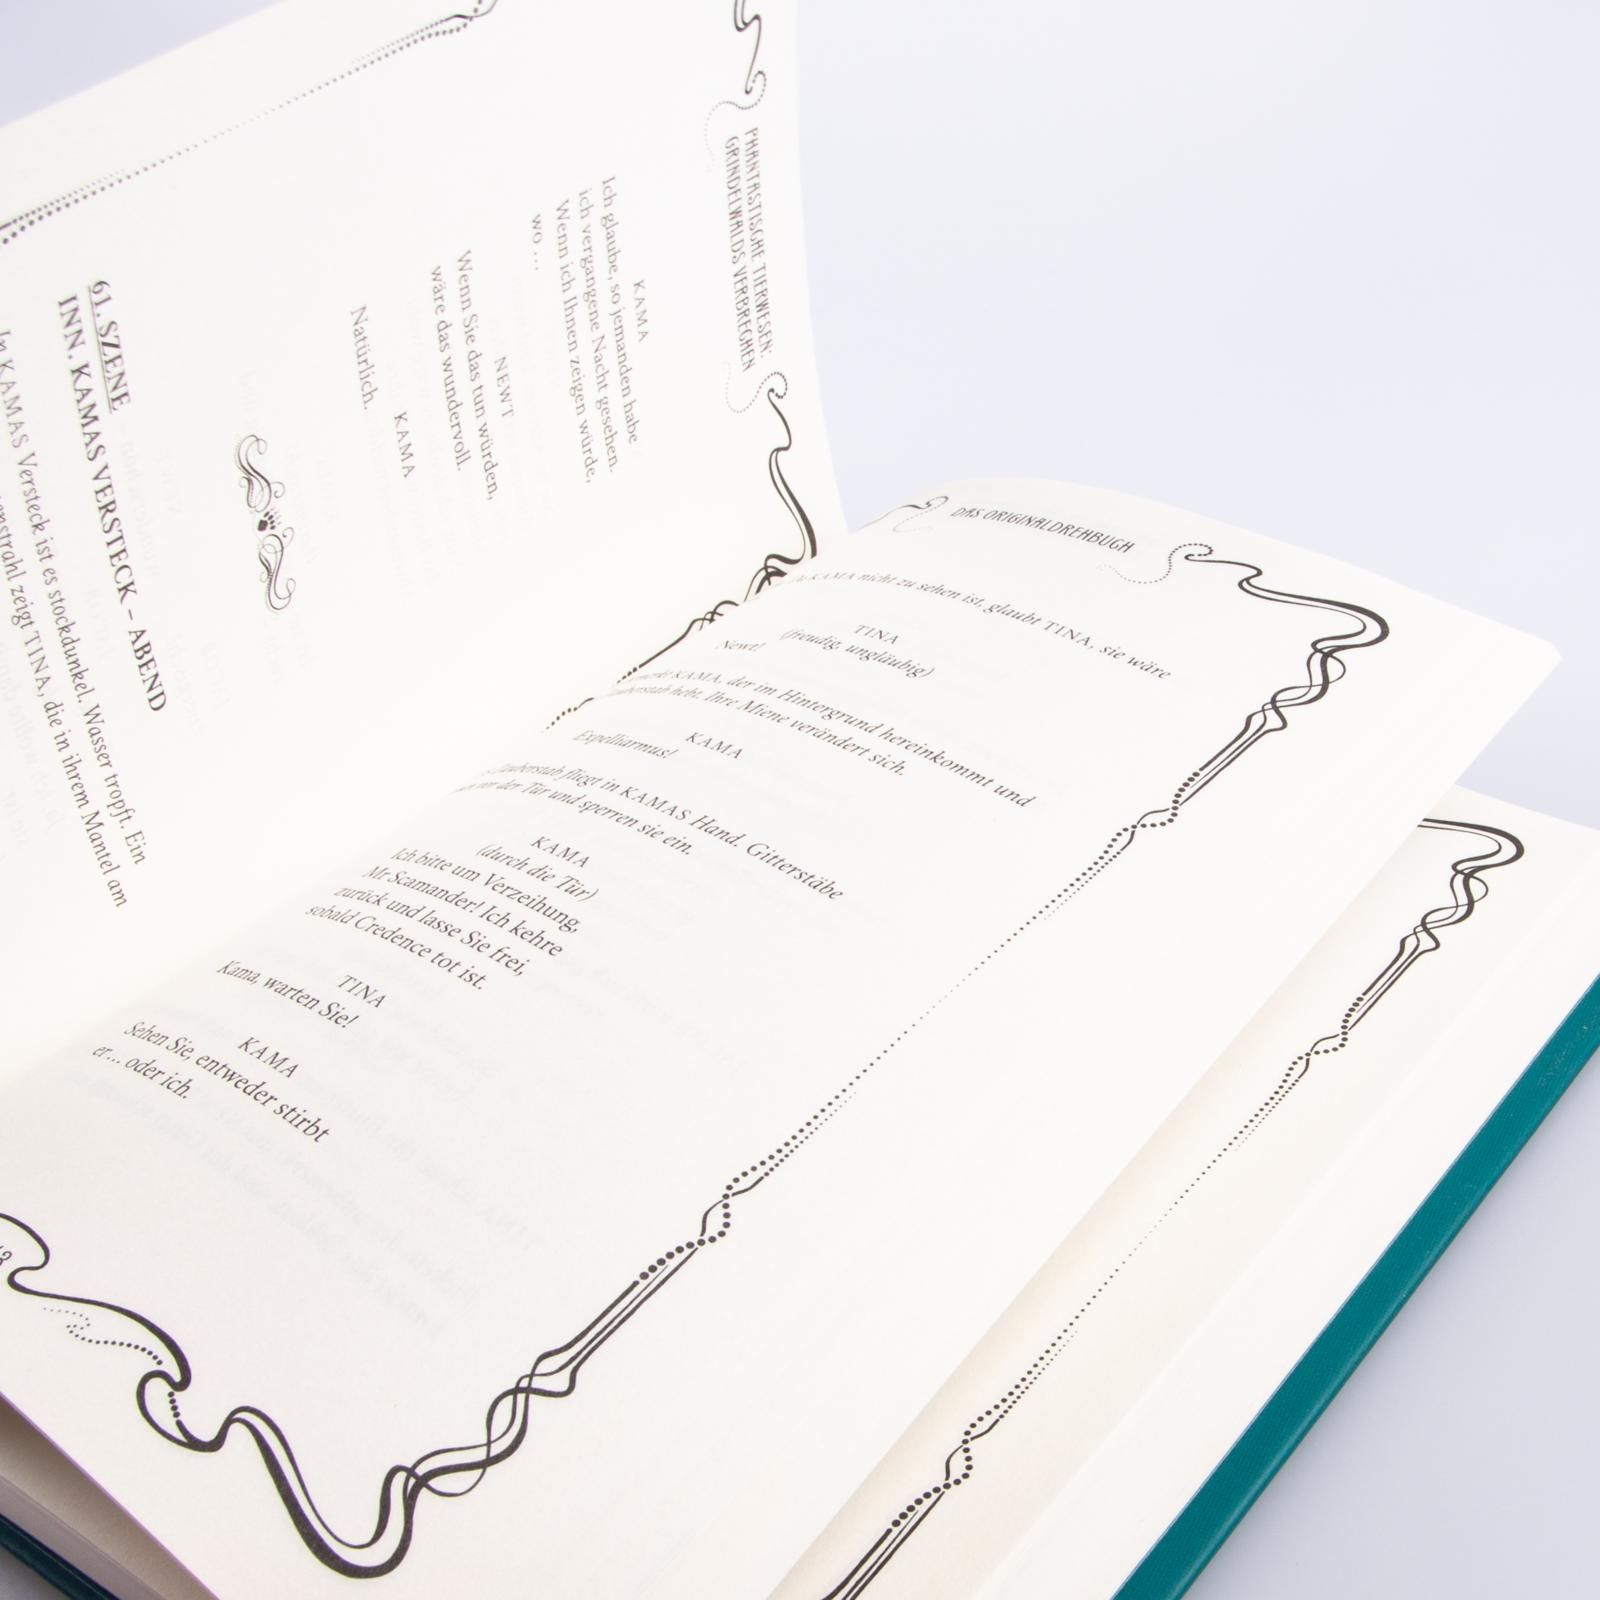 PHANTASTISCHE TIERWESEN:
GRINDELWALDS VERBRECHEN
KAMA
Ich glaube, so jemanden habe
ich vergangene Nacht gesehen.
Wenn ich Ihnen zeigen würde,
wo …
NEWT
Wenn Sie das tun würden,
wäre das wundervoll.
KAMA
Natürlich.
61. SZENE
INN. KAMAS VERSTECK – ABEND
In KAMAS Versteck ist es stockdunkel. Wasser tropft. Ein
zeigt TINA, die in ihrem Mantel am
DAS ORIGINALDREHBUCH
KAMA nicht zu sehen ist, glaubt TINA, sie wäre
TINA
(freudig, ungläubig)
Newt!
KAMA, der im Hintergrund hereinkommt und
hebt. Ihre Miene verändert sich.
KAMA
Expelliarmus!
Zauberstab fliegt in KAMAS Hand. Gitterstäbe
vor der Tür und sperren sie ein.
KAMA
(durch die Tür)
Ich bitte um Verzeihung,
Mr Scamander! Ich kehre
zurück und lasse Sie frei,
sobald Credence tot ist.
TINA
Kama, warten Sie!
KAMA
Sehen Sie, entweder stirbt
er … oder ich.